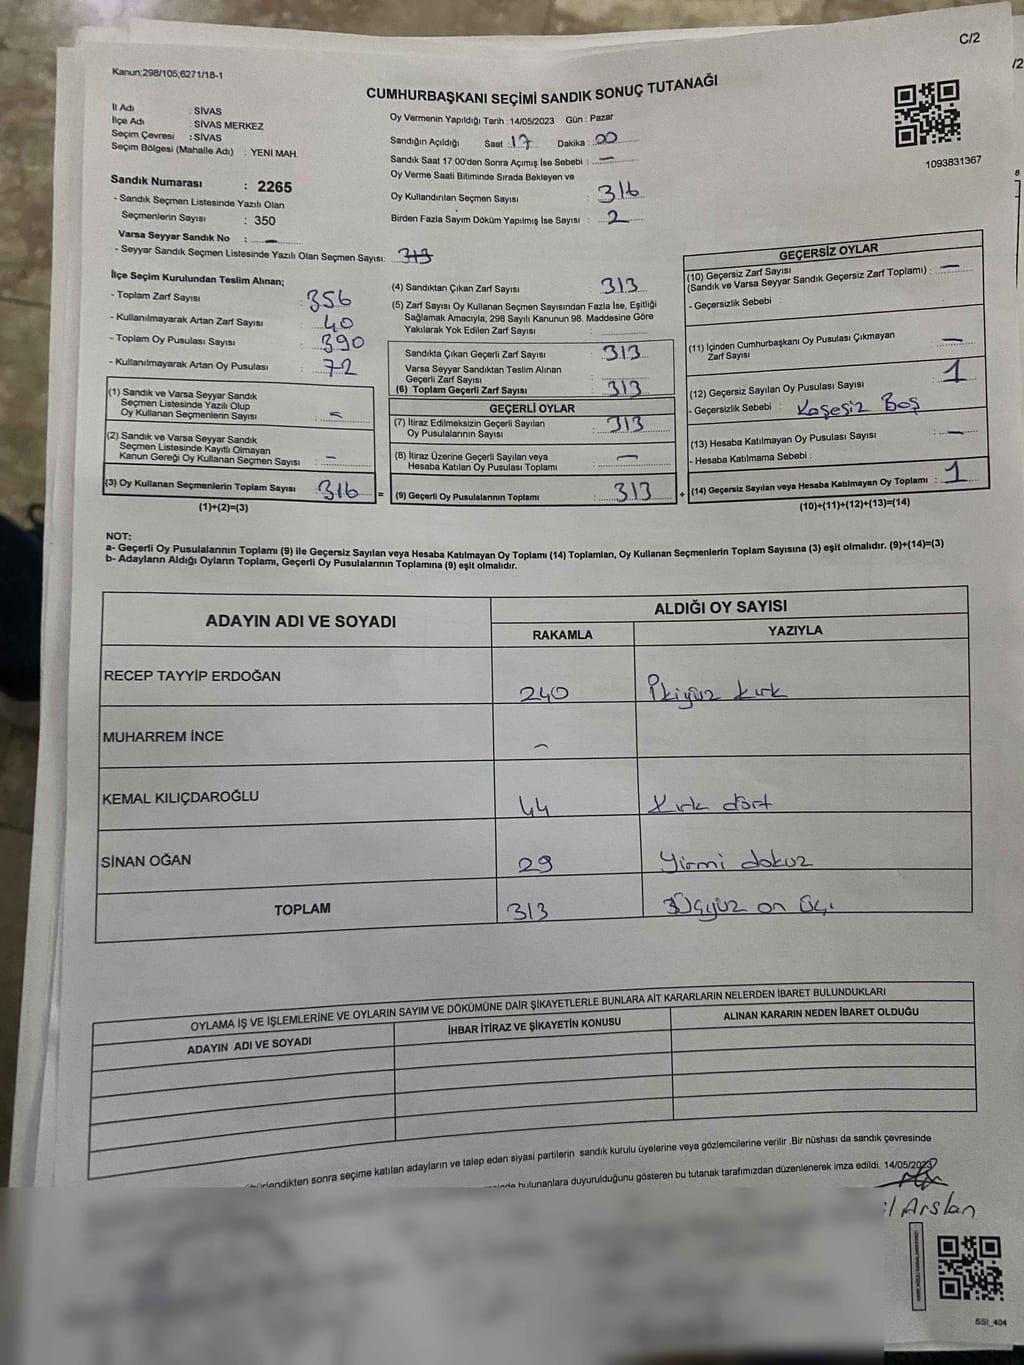 C/2
/2
Kanun:298/105;6271/18-1
CUMHURBAŞKANI SEÇİMİ SANDIK SONUÇ TUTANAĞI
1093831367
İl Adı : SİVAS
İlçe Adı : SİVAS MERKEZ
Seçim Çevresi : SİVAS
Seçim Bölgesi (Mahalle Adı) : YENİ MAH.
Sandık Numarası : 2265
- Sandık Seçmen Listesinde Yazılı Olan
Seçmenlerin Sayısı : 350
Varsa Seyyar Sandık No : –
- Seyyar Sandık Seçmen Listesinde Yazılı Olan Seçmen Sayısı: 313
Oy Vermenin Yapıldığı Tarih : 14/05/2023 Gün : Pazar
Sandığın Açıldığı Saat : 17 Dakika : 00
Sandık Saat 17:00'den Sonra Açımış İse Sebebi : –
Oy Verme Saati Bitiminde Sırada Bekleyen ve
Oy Kullandırılan Seçmen Sayısı : 316
Birden Fazla Sayım Döküm Yapılmış İse Sayısı : 2
İlçe Seçim Kurulundan Teslim Alınan;
- Toplam Zarf Sayısı : 356
- Kullanılmayarak Artan Zarf Sayısı : 40
- Toplam Oy Pusulası Sayısı : 390
- Kullanılmayarak Artan Oy Pusulası : 72
(1) Sandık ve Varsa Seyyar Sandık
Seçmen Listesinde Yazılı Olup
Oy Kullanan Seçmenlerin Sayısı : –
(2) Sandık ve Varsa Seyyar Sandık
Seçmen Listesinde Kayıtlı Olmayan
Kanun Gereği Oy Kullanan Seçmen Sayısı : –
(3) Oy Kullanan Seçmenlerin Toplam Sayısı : 316 =
(1)+(2)=(3)
(4) Sandıktan Çıkan Zarf Sayısı : 313
(5) Zarf Sayısı Oy Kullanan Seçmen Sayısından Fazla İse, Eşitliği
Sağlamak Amacıyla; 298 Sayılı Kanunun 98. Maddesine Göre
Yakılarak Yok Edilen Zarf Sayısı :
Sandıkta Çıkan Geçerli Zarf Sayısı : 313
Varsa Seyyar Sandıktan Teslim Alınan
Geçerli Zarf Sayısı :
(6) Toplam Geçerli Zarf Sayısı : 313
GEÇERLİ OYLAR
(7) İtiraz Edilmeksizin Geçerli Sayılan
Oy Pusulalarının Sayısı : 313
(8) İtiraz Üzerine Geçerli Sayılan veya
Hesaba Katılan Oy Pusulası Toplamı : –
(9) Geçerli Oy Pusulalarının Toplamı : 313 +
GEÇERSİZ OYLAR
(10) Geçersiz Zarf Sayısı
(Sandık ve Varsa Seyyar Sandık Geçersiz Zarf Toplamı) : –
- Geçersizlik Sebebi :
(11) İçinden Cumhurbaşkanı Oy Pusulası Çıkmayan
Zarf Sayısı : –
(12) Geçersiz Sayılan Oy Pusulası Sayısı : 1
- Geçersizlik Sebebi : Kaşesiz Boş
(13) Hesaba Katılmayan Oy Pusulası Sayısı : –
- Hesaba Katılmama Sebebi :
(14) Geçersiz Sayılan veya Hesaba Katılmayan Oy Toplamı : 1
(10)+(11)+(12)+(13)=(14)
NOT:
a- Geçerli Oy Pusulalarının Toplamı (9) ile Geçersiz Sayılan veya Hesaba Katılmayan Oy Toplamı (14) Toplamları, Oy Kullanan Seçmenlerin Toplam Sayısına (3) eşit olmalıdır. (9)+(14)=(3)
b- Adayların Aldığı Oyların Toplamı, Geçerli Oy Pusulalarının Toplamına (9) eşit olmalıdır.
ADAYIN ADI VE SOYADI ALDIĞI OY SAYISI
RAKAMLA YAZIYLA
RECEP TAYYİP ERDOĞAN 240 İkiyüz kırk
MUHARREM İNCE –
KEMAL KILIÇDAROĞLU 44 Kırk dört
SİNAN OĞAN 29 Yirmi dokuz
TOPLAM 313 Üçyüz on üç.
OYLAMA İŞ VE İŞLEMLERİNE VE OYLARIN SAYIM VE DÖKÜMÜNE DAİR ŞİKAYETLERLE BUNLARA AİT KARARLARIN NELERDEN İBARET BULUNDUKLARI
ADAYIN ADI VE SOYADI İHBAR İTİRAZ VE ŞİKAYETİN KONUSU ALINAN KARARIN NEDEN İBARET OLDUĞU
sonra seçime katılan adayların ve talep eden siyasi partilerin sandık kurulu üyelerine veya gözlemcilerine verilir .Bir nüshası da sandık çevresinde
bulunanlara duyurulduğunu gösteren bu tutanak tarafımızdan düzenlenerek imza edildi. 14/05/2023
Arslan
SSI_404